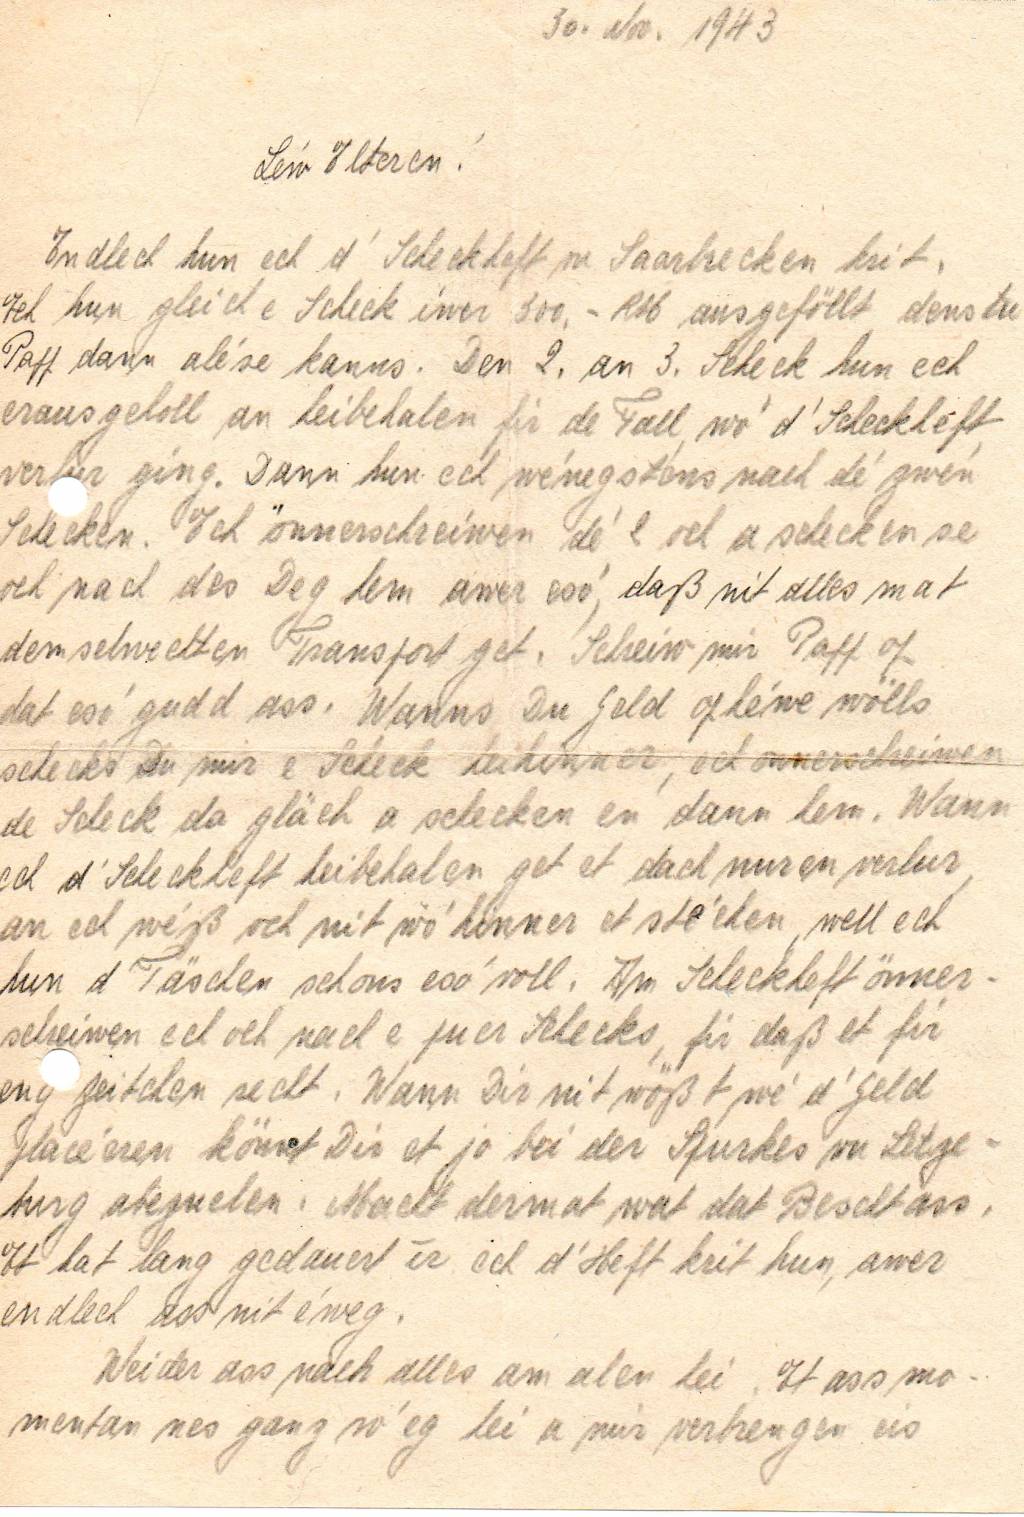 30. Nov. 1943
Léiw Elteren!
Endlech hun ech d'Scheckheft vu Saarbrecken krit.
Ech hun gleich e Scheck iwer 300,- RM ausgeföllt dens tu
Papp dann aléise kanns. Den 2. an 3. Scheck hun ech
erausgeholl an beibehalen fir de Fall, wo' d'Scheckheft
verlur ging. Dann hun ech wénegsténs nach dé zwén
Schecken. Ech önnerschreiwen dé 2 och a schecken se
och nach des Deg hem awer esó, daß nit alles mat
demselwechten Transport get. Schreiw mir Papp op
dat esó gudd ass. Wanns Du Geld ophéwe wölls
schecks Du mir e Scheck heihinner, ech önnerschreiwen
de Scheck da gläch a schecken en dann hem. Wann
ech d'Scheckheft beibehalen get et dach nuren verlur,
an ech wéß och nit wó hinner et stéchen, well ech
hun d'Täschen schons esó voll. Am Scheckheft önner-
schreiwen ech och nach e puer Schecks, fir daß et fir
eng Zeitchen recht. Wann Dir nit wößt wé d'Geld
placéeren könnt Dir et jo bei der Spurkes vu Letze-
burg abezuelen. Macht dermat wat dat Bescht ass.
Et hat lang gedauert ir ech d'Heft krit hun, awer
endlech ass nit éweg.
Weider ass nach alles am alen hei. Et ass mo-
mentan nes ganz ró'eg hei a mir verbrengen eis